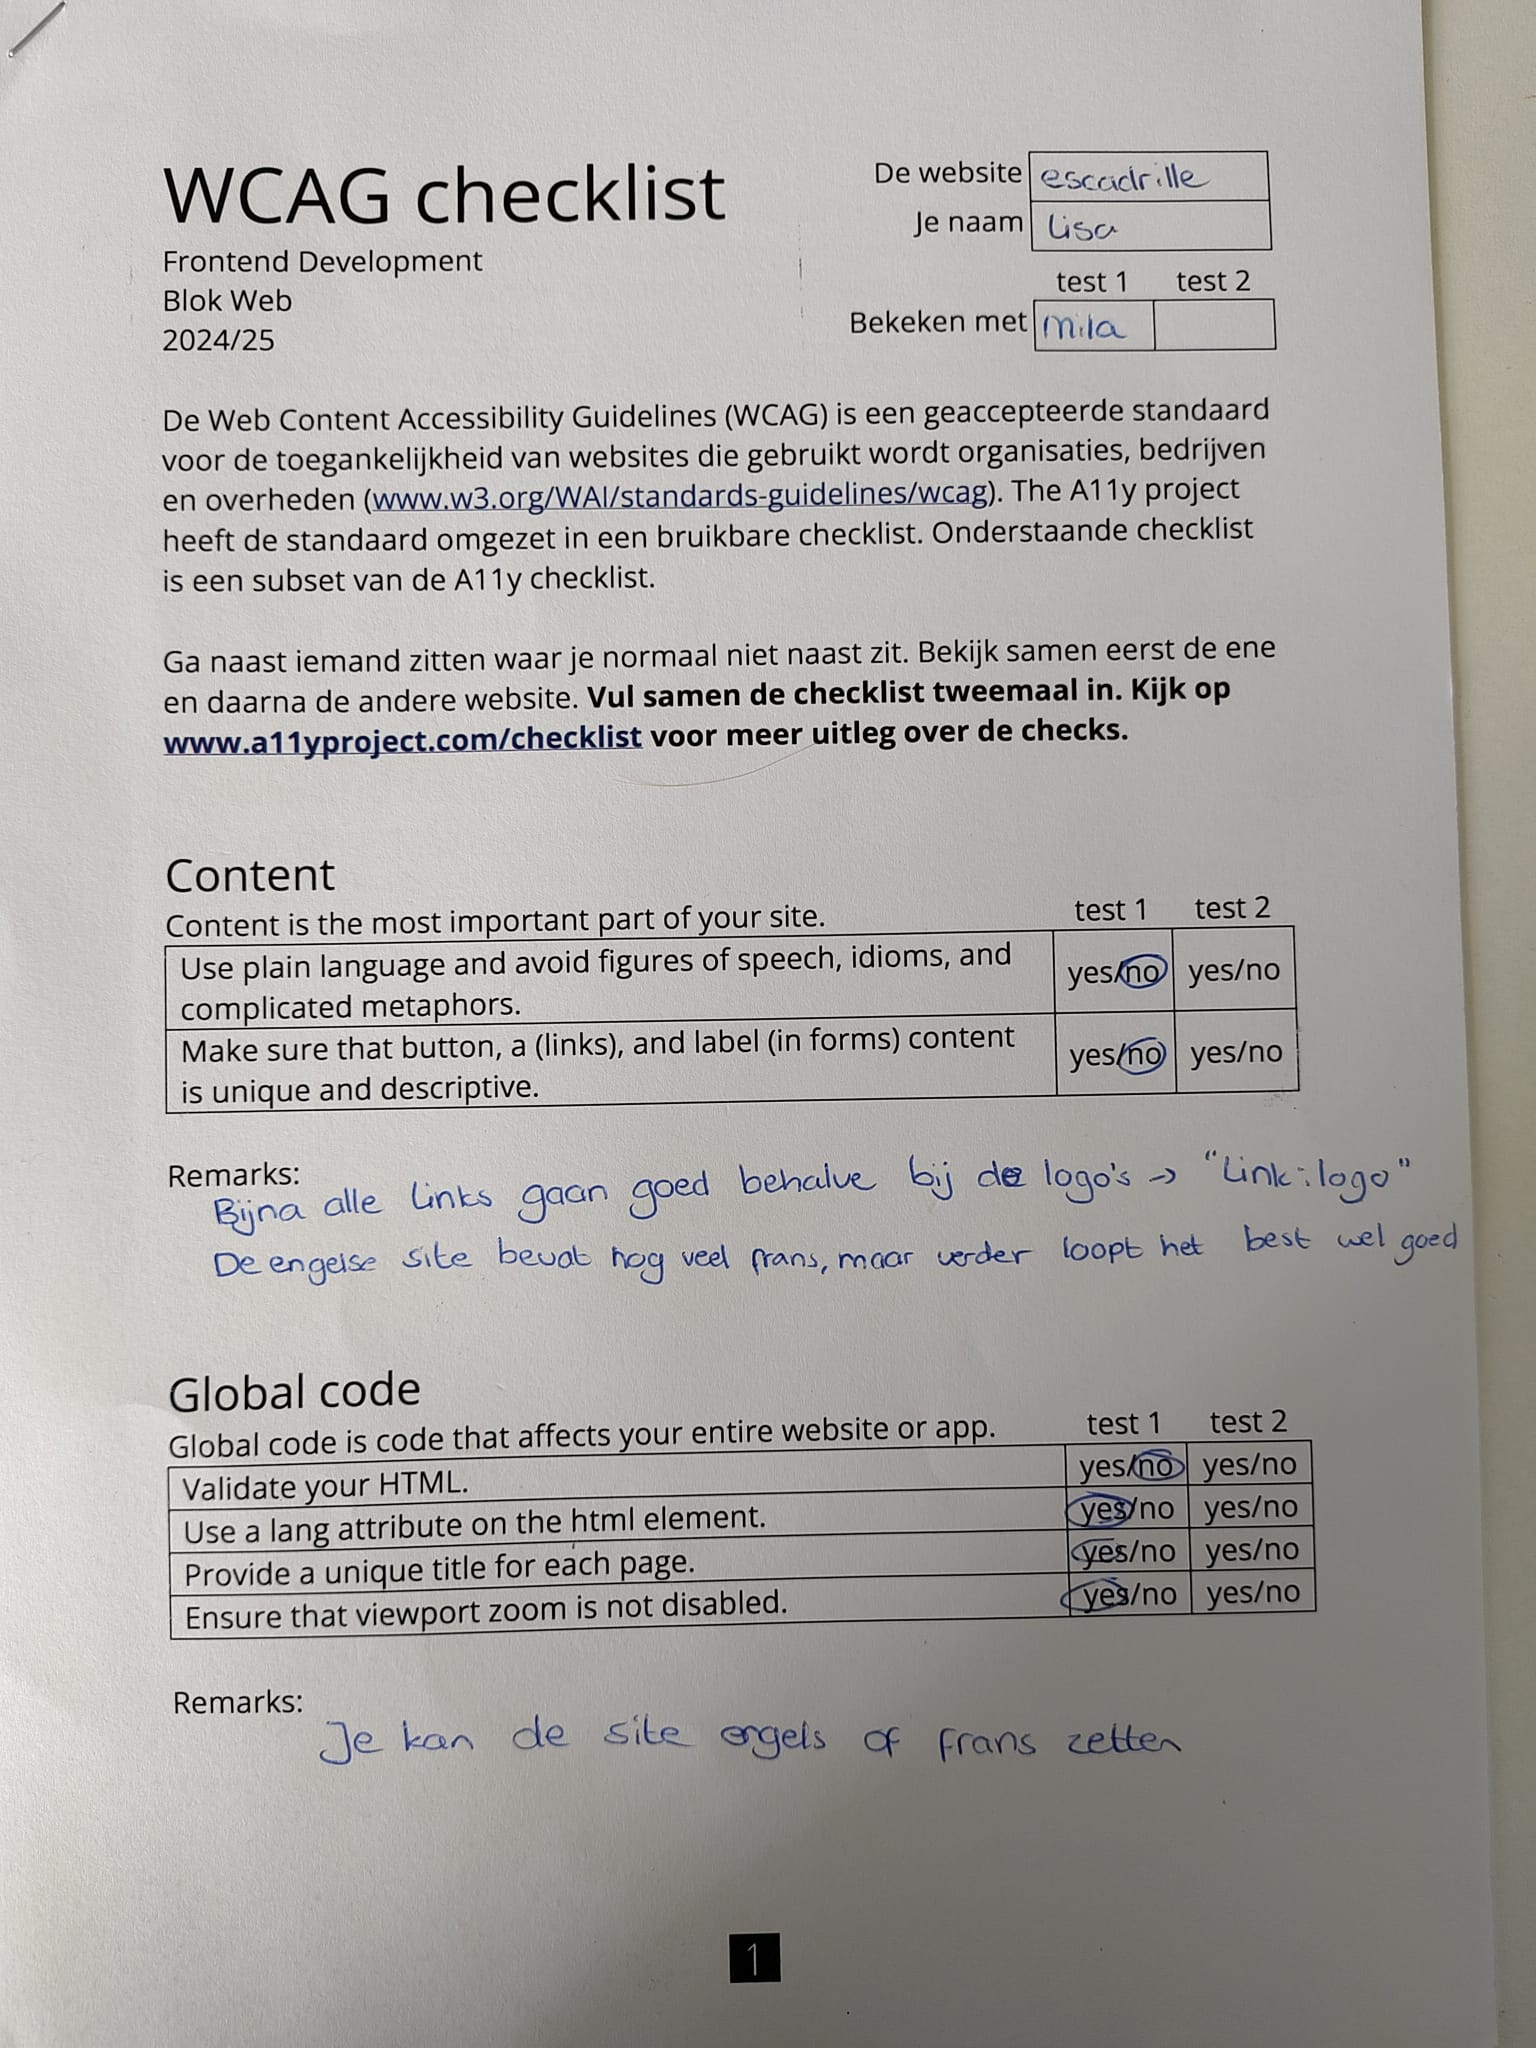 WCAG checklist
Frontend Development
Blok Web
2024/25
De website escadrille
Je naam Lisa
test 1 test 2
Bekeken met mila
De Web Content Accessibility Guidelines (WCAG) is een geaccepteerde standaard
voor de toegankelijkheid van websites die gebruikt wordt organisaties, bedrijven
en overheden (www.w3.org/WAI/standards-guidelines/wcag). The A11y project
heeft de standaard omgezet in een bruikbare checklist. Onderstaande checklist
is een subset van de A11y checklist.
Ga naast iemand zitten waar je normaal niet naast zit. Bekijk samen eerst de ene
en daarna de andere website. Vul samen de checklist tweemaal in. Kijk op
www.a11yproject.com/checklist voor meer uitleg over de checks.
Content
Content is the most important part of your site. test 1 test 2
Use plain language and avoid figures of speech, idioms, and
complicated metaphors. yes/no yes/no
Make sure that button, a (links), and label (in forms) content
is unique and descriptive. yes/no yes/no
Remarks:
Bijna alle links gaan goed behalve bij de logo's → "Link: logo"
De engelse site bevat nog veel frans, maar verder loopt het best wel goed
Global code
Global code is code that affects your entire website or app. test 1 test 2
Validate your HTML. yes/no yes/no
Use a lang attribute on the html element. yes/no yes/no
Provide a unique title for each page. yes/no yes/no
Ensure that viewport zoom is not disabled. yes/no yes/no
Remarks:
Je kan de site engels of frans zetten
1